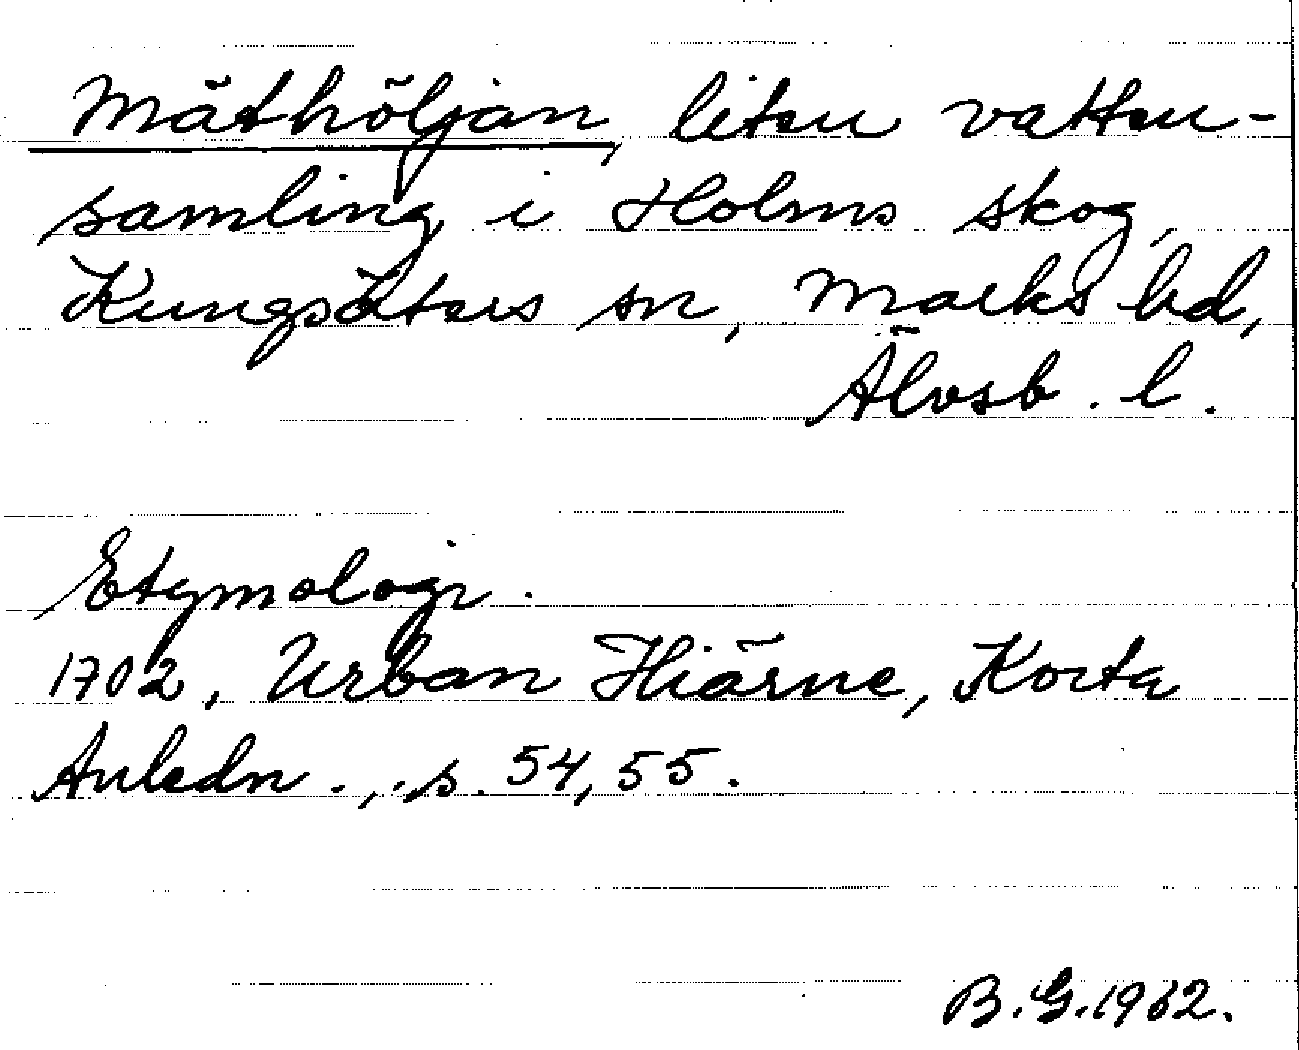 Mäthöljan, liten vatten-
samling i Holms skog,
Kungsäters sn, Marks hd,
Älvsb. l.
Etymologi.
1702, Urban Hiärne, Korta
Anledn., s. 54, 55.
B.G. 1962.